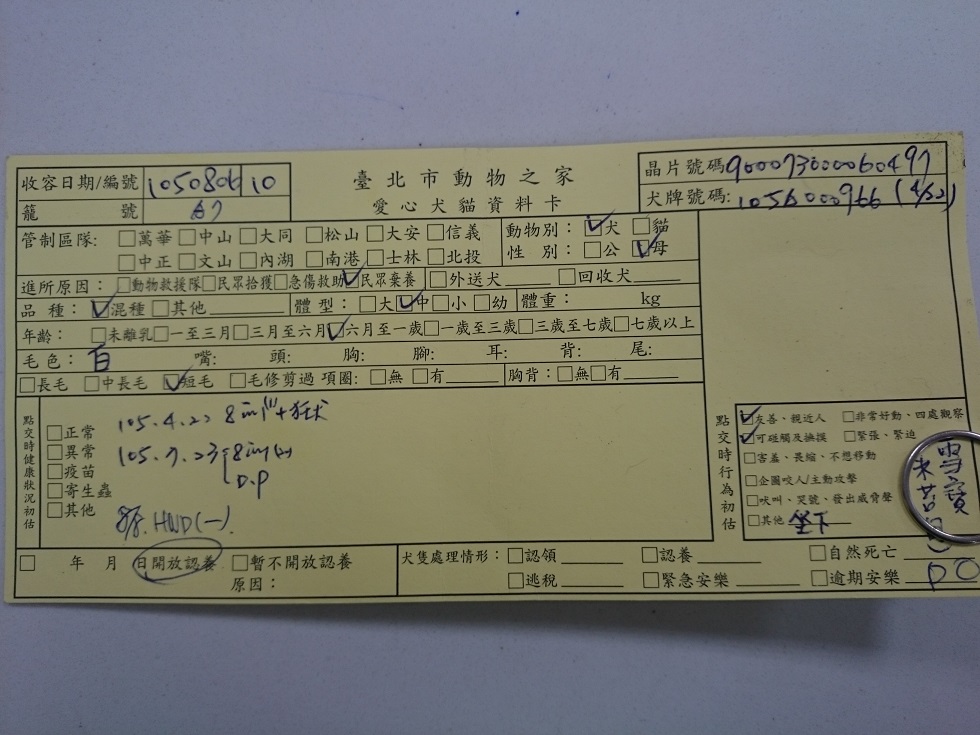 收容日期/編號 1050806 10
臺北市動物之家
愛心犬貓資料卡
晶片號碼 900073000060497
犬牌號碼: 1056000966 (4/22)
籠 號
管制區隊: □萬華□中山□大同 □松山□大安□信義
□中正□文山□內湖 □南港□士林□北投
動物別: ☑犬 □貓
性 別: □公 ☑母
進所原因: □動物救援隊□民眾拾獲□急傷救助☑民眾棄養 □外送犬 □回收犬
品種: ☑混種□其他 體型: □大☑中□小□幼 體重: kg
年齡: □未離乳□一至三月□三月至六月☑六月至一歲□一歲至三歲□三歲至七歲□七歲以上
毛色: 白 嘴: 頭: 胸: 腳: 耳: 背: 尾:
□長毛 □中長毛 ☑短毛 □毛修剪過 項圈: □無 □有 胸背: □無□有
點交時健康狀況初估
□正常
□異常
□疫苗
□寄生蟲
□其他
105.4.22 8in1+狂犬
105.7.23 8in1
D.P
HWD(-)
點交時行為初估
☑友善、親近人 □非常好動、四處觀察
☑可碰觸及撫摸 □緊張、緊迫
□害羞、畏縮、不想移動
□企圖咬人/主動攻擊
□吠叫、哭號、發出威脅聲
□其他 坐下
雪寶
□ 年 月 日開放認養 □暫不開放認養
原因:
犬隻處理情形: □認領 □認養 □自然死亡
□逃稅 □緊急安樂 □逾期安樂